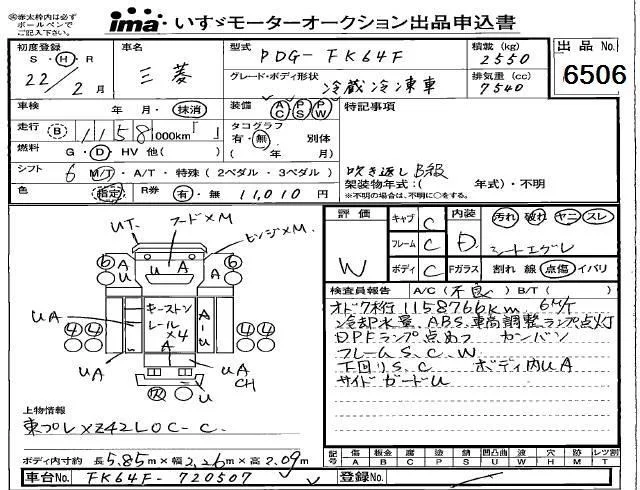 ※赤太枠内は必ずボールペンでご記入下さい。
ima いすゞモーターオークション出品申込書
初度登録 S・H・R 22/2月
車名 三菱
型式 PDG-FK64F
積載(kg) 2550
出品No. 6506
グレード・ボディ形状 冷蔵冷凍車
排気量(cc) 7540
車検 年 月・抹消
装備 AC PS PW
特記事項
走行 B 1158,000km「 」
タコグラフ 有・無 別体 ( 年 月)
燃料 G・D・HV 他( )
シフト 6 M/T・A/T・特殊(2ペダル・3ペダル)
吹き返しB級
架装物年式:( 年式)・不明
※不明の場合は、不明に○をする。
色 指定 R券 有・無 11,010円
評価 W
キャブ C
フレーム C
ボディ C
内装 D
汚れ 破れ ヤニ スレ
シートエグレ
Fガラス 割れ 線 点傷 イバリ
UT
フード×M
ヒンジ×M
6 A U A A 6
UA キーストンレール×4 A-U
4 4 4 4
UA A UA
CH
U
検査員報告 A/C(不良)B/T( )
オドク末行 1158766km 6M/T
冷却水量、ABS、車高調整ランプ点灯
DPFランプ点めつ カンバン
フレームS、C、W
下回りS、C ボディ内UA
サイドガードU
上物情報
東プレXZ42LOC-C
ボディ内寸約 長5.85m×幅2.26m×高2.09m
記号 傷A 板金B 腐C 塗P 錆S 凹凸曲U 波W 穴H 跡M レツ割T
車台No. FK64F-720507
登録No.